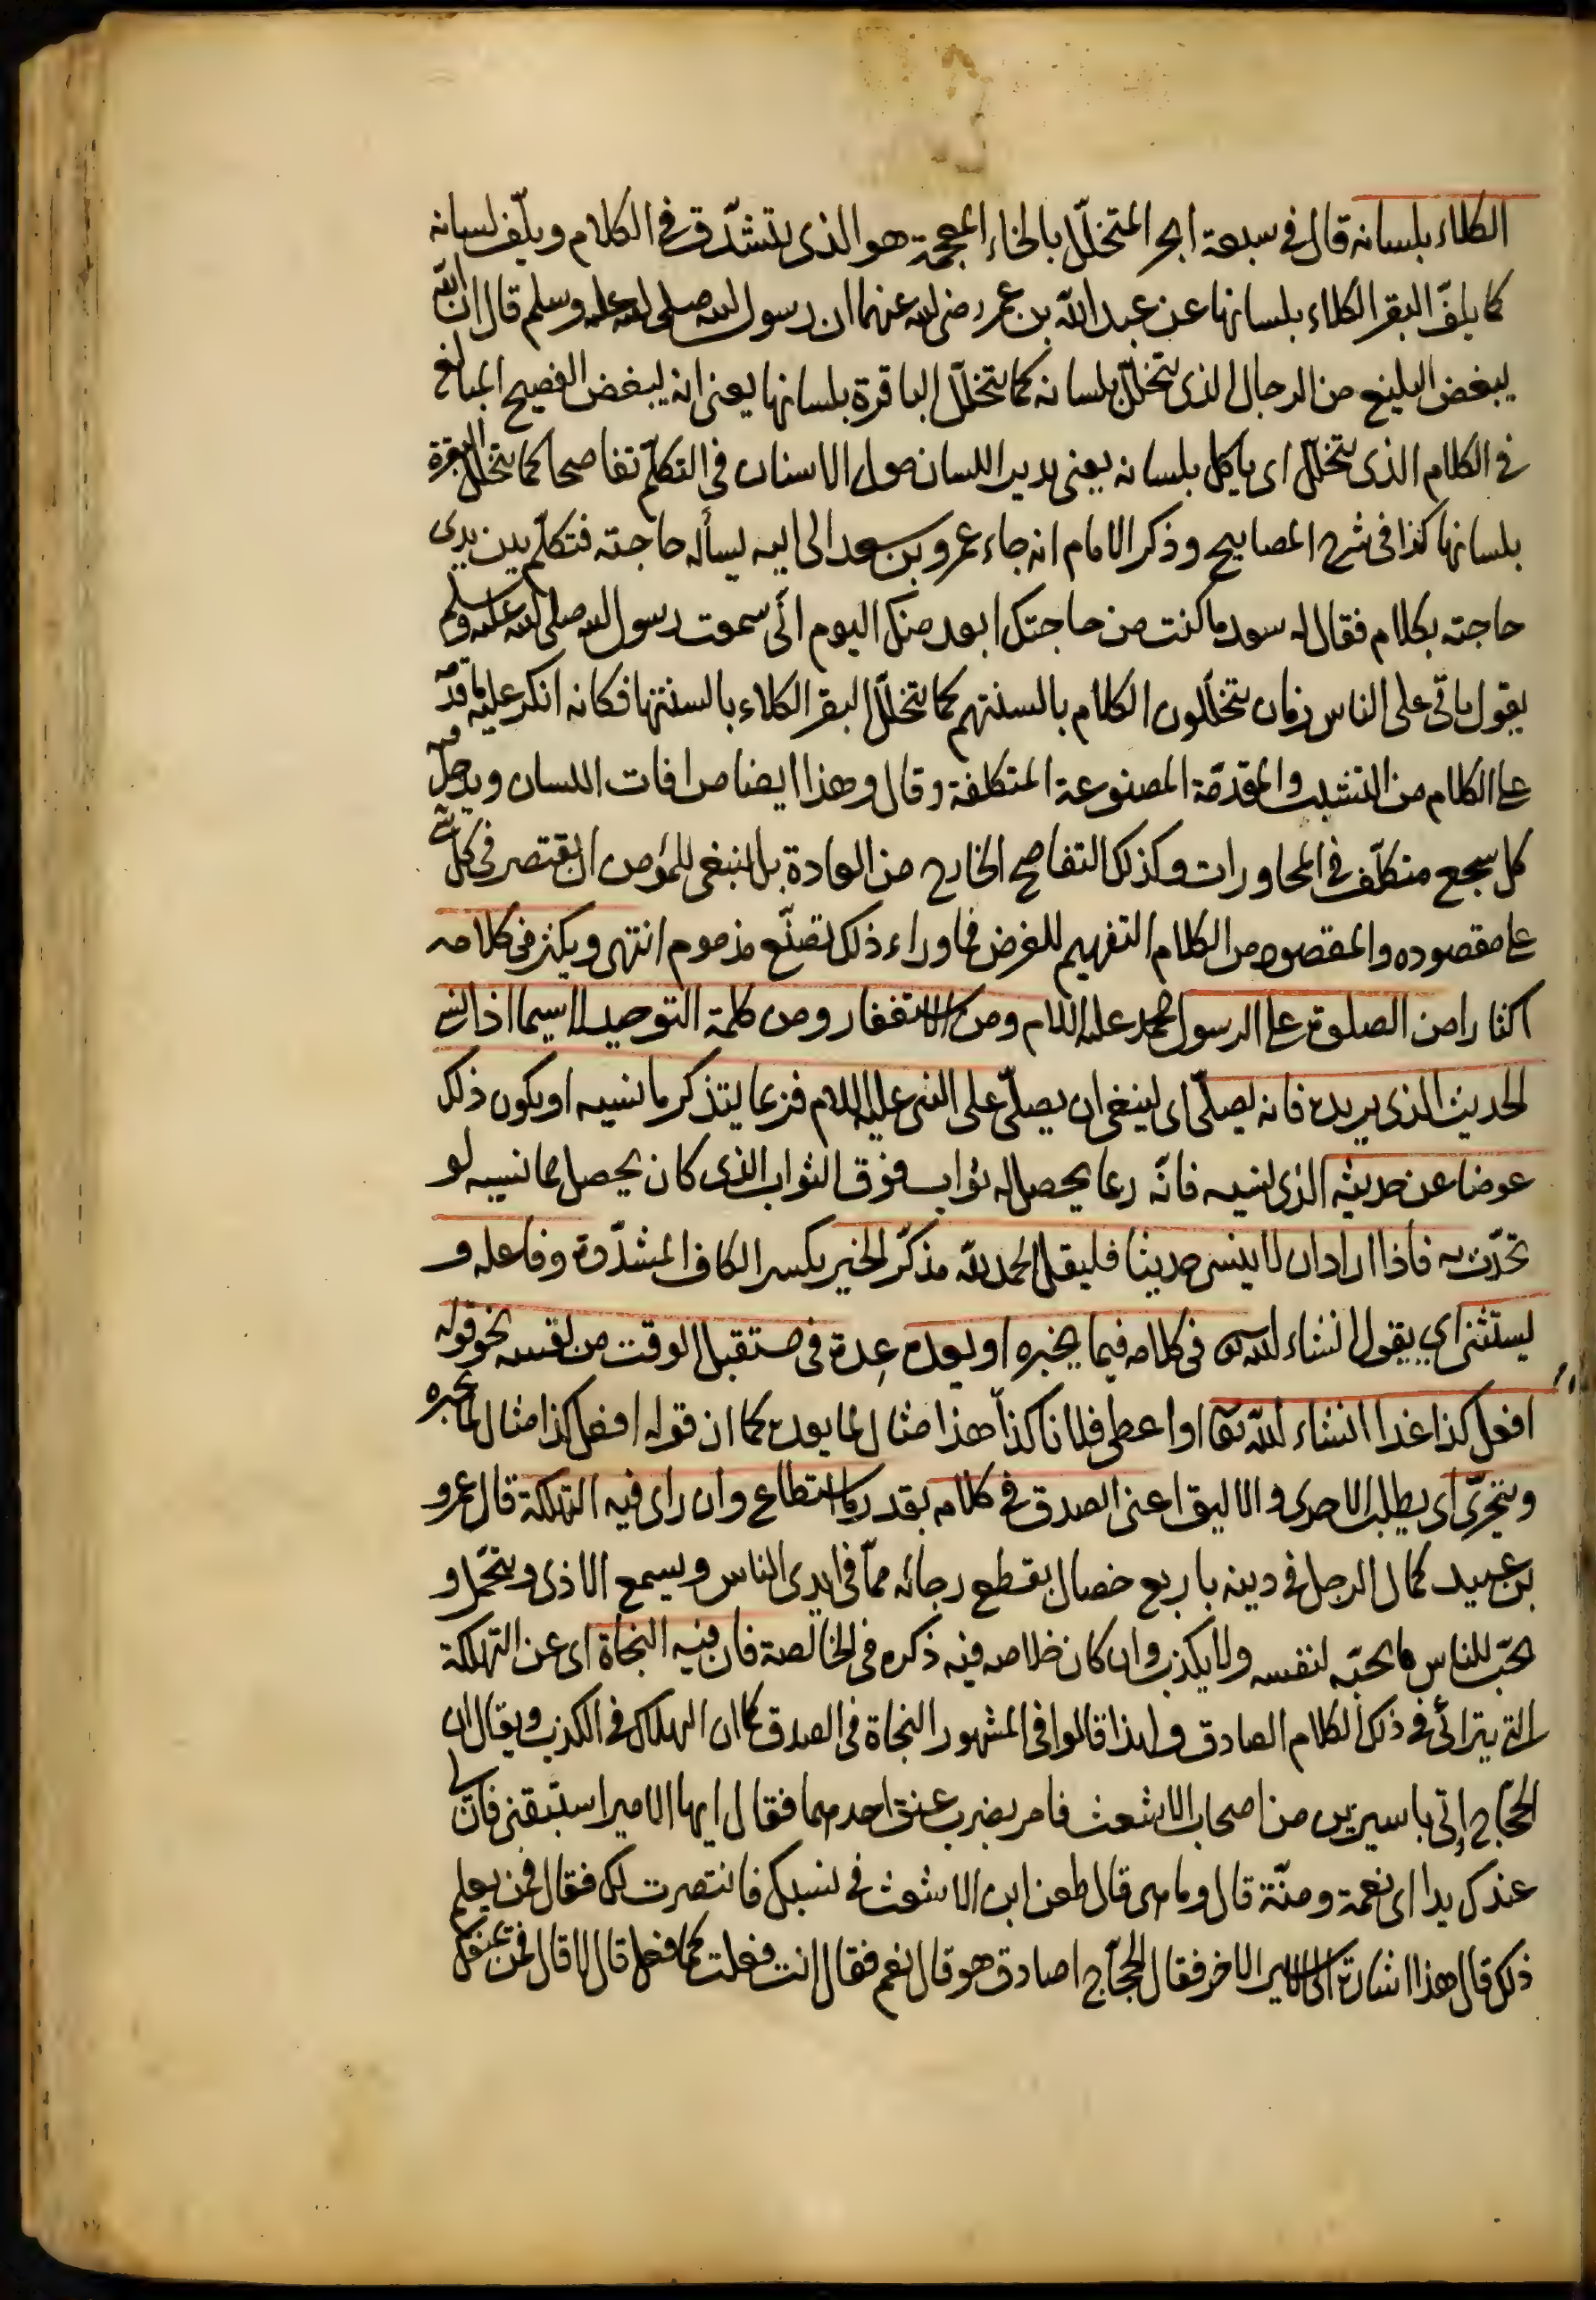 الكلاء بلسانه قال فى سبعة ابحر المتخلّل بالخاء المعجمة هو الذى يتشدّق فى الكلام ويلفّ لسانه
كما يلفّ البقر الكلاء بلسانها عن عبد الله بن عمر رضى الله عنهما ان رسول الله صلى الله عليه وسلم قال ان الله
يبغض البليغ من الرجال الذى يتخلّل بلسانه كما يتخلّل الباقرة بلسانها يعنى انه يبغض الفصيح المبالغ
فى الكلام الذى يتخلّل اى ياكل بلسانه يعنى يدير اللسان حول الاسنان فى التكلّم تفاصحا كما يتخلّل البقرة
بلسانها كذا فى شرح المصابيح وذكر الامام انه جاء عمرو بن سعد الى ابيه يسأله حاجته فتكلّم بين يدى
حاجته بكلام فقال له سعد ما كنت من حاجتك ابعد منك اليوم انّى سمعت رسول الله صلى الله عليه وسلم
يقول ياتى على الناس زمان يتخلّلون الكلام بالسنتهم كما يتخلّل البقر الكلاء بالسنتها فكانه انكر عليه ما قدّمه
على الكلام من التشبيب والمقدّمة المصنوعة المتكلفة وقال وهذا ايضا من افات اللسان ويدخل فيه
كل سجع متكلّف فى المحاورات وكذلك التفاصح الخارج من العادة بل ينبغى للمؤمن ان يقتصر فى كل شئ
على مقصوده والمقصود من الكلام التفهيم للغرض فما وراء ذلك تصنّع مذموم انتهى ويكثر فى كلامه
اكثارا من الصلوة على الرسول محمد عليه السلام ومن الاستغفار ومن كلمة التوحيد لا سيما اذا نسى
الحديث الذى يريده فانه يصلّى اى ينبغى ان يصلّى على النبى عليه السلام فربما يتذكر ما نسيه او يكون ذلك
عوضا عن حديثه الذى نسيه فانّه ربما يحصل له ثواب فوق الثواب الذى كان يحصل بما نسيه لو
تحدّث به فاذا اراد ان لا ينسى حديثا فليقل الحمد لله مذكّر الخير بكسر الكاف المشدّدة وفاعله و
يستثنى اى يقول ان شاء الله تع فى كلامه فيما يخبره او يعده عِدة فى مستقبل الوقت من نفسه نحو قوله
افعل كذا غدا ان شاء الله تعا او اعطى فلانا كذا هذا مثال لما يعده كما ان قوله افعل كذا مثال لما يخبره
ويتحرّى اى يطلب الاحرى والاليق اعنى الصدق فى كلامه بقدر ما استطاع وان راى فيه التهلكة قال عمرو
بن عبيد كمال الرجل فى دينه باربع خصال بقطع رجائه ممّا فى ايدى الناس ويسمع الاذى ويتحمل و
يحبّ للناس ما يحبّه لنفسه ولا يكذب وان كان خلاصه فيه ذكره فى الخالصة فان فيه النجاة اى عن التهلكة
التى يترائى فى ذلك الكلام الصادق ولهذا قالوا فى المشهور النجاة فى الصدق كما ان الهلاك فى الكذب ويقال ان
الحجّاج اِتى باسيرين من اصحاب الاشعث فامر بضرب عنق احدهما فقال ايها الامير استبقنى فان لى
عندك يدا اى نعمة ومنّة قال وما هى قال طعن ابن الاشعث فى نسبك فانتصرت لك فقال فمن يعلم
ذلك قال هذا اشارة الى الاسير الاخر فقال الحجّاج اصادق هو قال نعم فقال انت فعلت كما فعل قال لا قال فمن